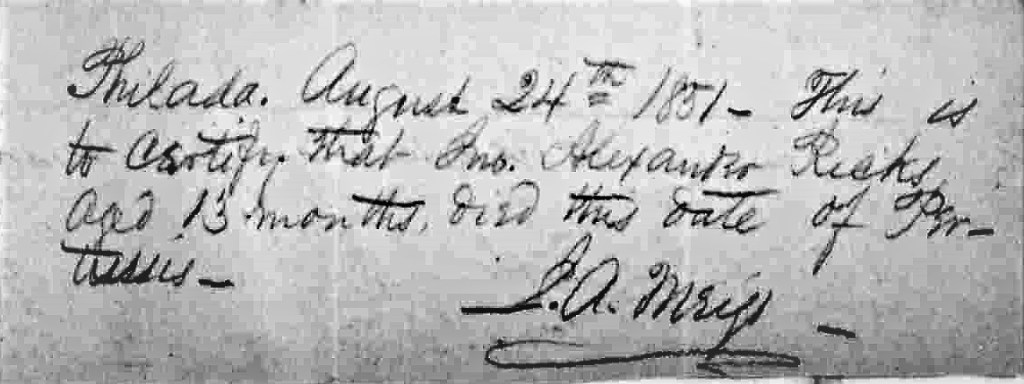 Philada. August 24th 1851 - This is
to certify that Jno. Alexander Ricks,
aged 13 months, died this date of Per-
tussis -
J. A. Meigs -